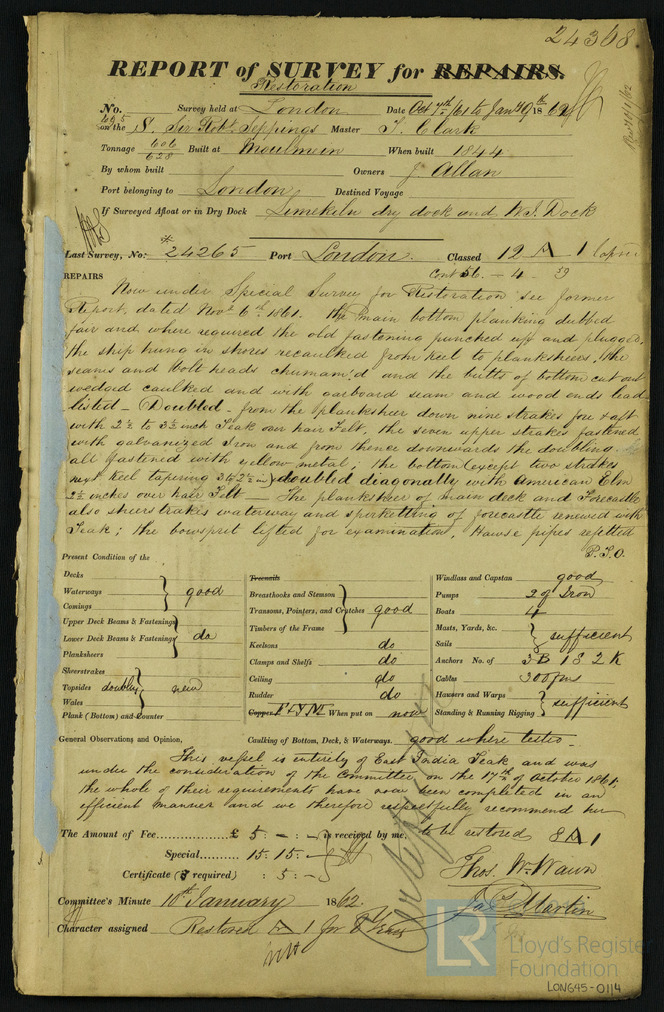 24368
REPORT of SURVEY for REPAIRS.
Restoration
No. 495 Survey held at London Date Oct 7th /61 to Jan 9th 1862
on the S. Sir Robt. Seppings Master T. Clark
Tonnage 606 628 Built at Moulmein When built 1844
By whom built Owners J Allan
Port belonging to London Destined Voyage
If Surveyed Afloat or in Dry Dock Limekiln dry dock and W.I. Dock
Last Survey, No: 24265 Port London. Classed 12 A 1
Cont 56. - 4 - 59
REPAIRS
Now under Special Survey for Restoration see former
Report, dated Novr 6th 1861. The main bottom planking dubbed
fair and where required the old fastening punched up and plugged,
the ship hung in shores recaulked from keel to planksheers, the
seams and bolt heads chunam'd and the butts of bottom cut out
wedged caulked and with garboard seam and wood ends lead
listed - Doubled - from the planksheer down nine strakes fore & aft
with 2½ to 3½ inch Teak over hair Felt, the seven upper strakes fastened
with galvanized Iron and from thence downwards the doubling
all fastened with yellow metal; the bottom (except two strakes
next keel tapering 3 to 2½ in) doubled diagonally with American Elm
2½ inches over hair Felt - The planksheer of main deck and Forecastle
also sheerstrakes waterway and spirketting of forecastle renewed with
Teak; the bowsprit lifted for examination, Hawse pipes refitted
P.T.O.
Present Condition of the
Decks
Waterways good
Comings
Upper Deck Beams & Fastenings
Lower Deck Beams & Fastenings do
Planksheers
Sheerstrakes
Topsides doubling new
Wales
Plank (Bottom) and Counter
Treenails
Breasthooks and Stemson
Transoms, Pointers, and Crutches good
Timbers of the Frame
Keelsons do
Clamps and Shelfs do
Ceiling do
Rudder do
Copper F & Y M When put on now
Windlass and Capstan good
Pumps 2 of Iron
Boats 4
Masts, Yards, &c. sufficient
Sails
Anchors No. of 3 B 1 S 2 K
Cables 300 fms
Hawsers and Warps sufficient
Standing & Running Rigging
General Observations and Opinion, Caulking of Bottom, Deck, & Waterways. good where tested
This vessel is entirely of East India Teak and was
under the consideration of the Committee on the 17th of October 1861,
the whole of their requirements have now been completed in an
efficient manner and we therefore respectfully recommend her
to be restored 8 A 1
The Amount of Fee............... £ 5 : - : - is received by me,
Special.......... 15. 15: -
Certificate (if required) : 5 : -
Thos. W. Wawn
Jas. Martin
Committee's Minute 10th January 1862
Character assigned Restored A 1 for 8 Years
LR Lloyd's Register
Foundation
LON645-0114